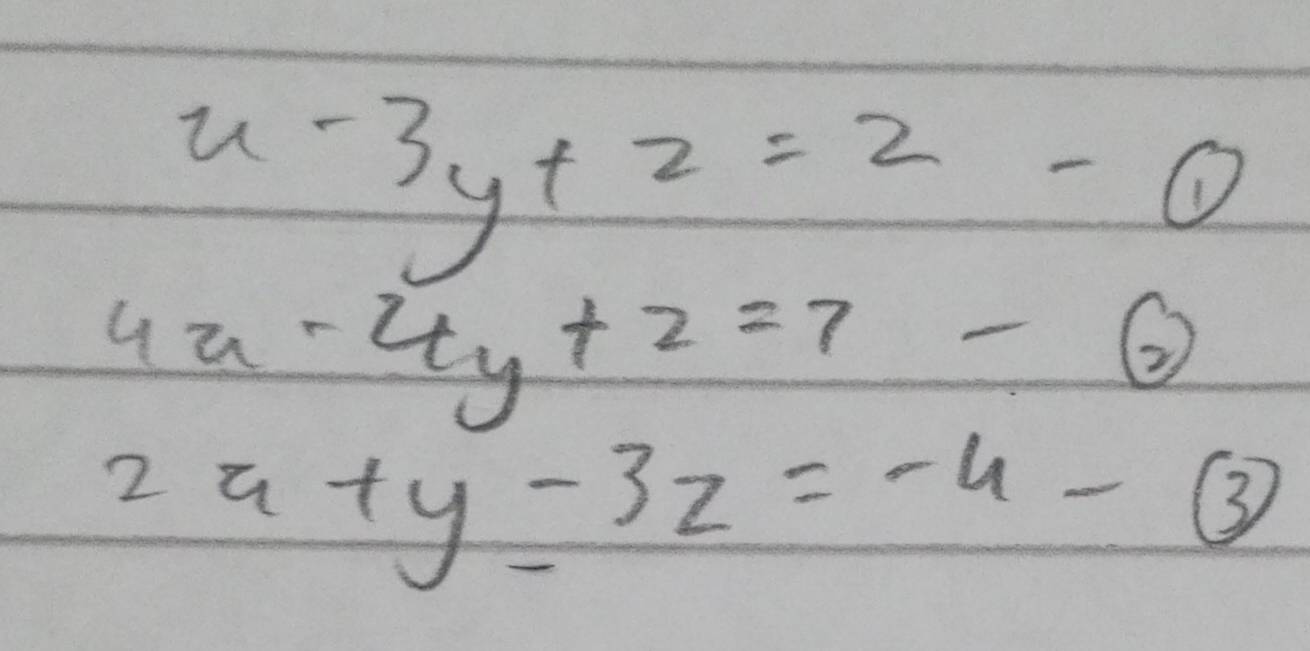 x - 3y + z = 2 - ①
4x - 4y + z = 7 - ②
2x + y - 3z = -4 - ③